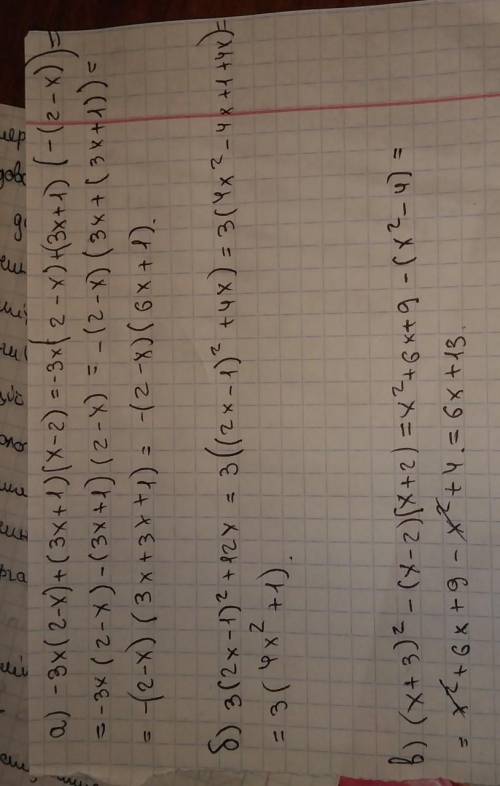 а) -3x(2-x)+(3x+1)(x-2)=-3x(2-x)+(3x+1)(-(2-x))=
=-3x(2-x)-(3x+1)(2-x) = -(2-x)(3x+(3x+1))=
= -(2-x)(3x+3x+1) = -(2-x)(6x+1).
б) 3(2x-1)²+12x = 3((2x-1)²+4x) = 3(4x²-4x+1+4x)=
= 3(4x²+1).
в) (x+3)²-(x-2)(x+2)=x²+6x+9-(x²-4)=
= x²+6x+9-x²+4.=6x+13.